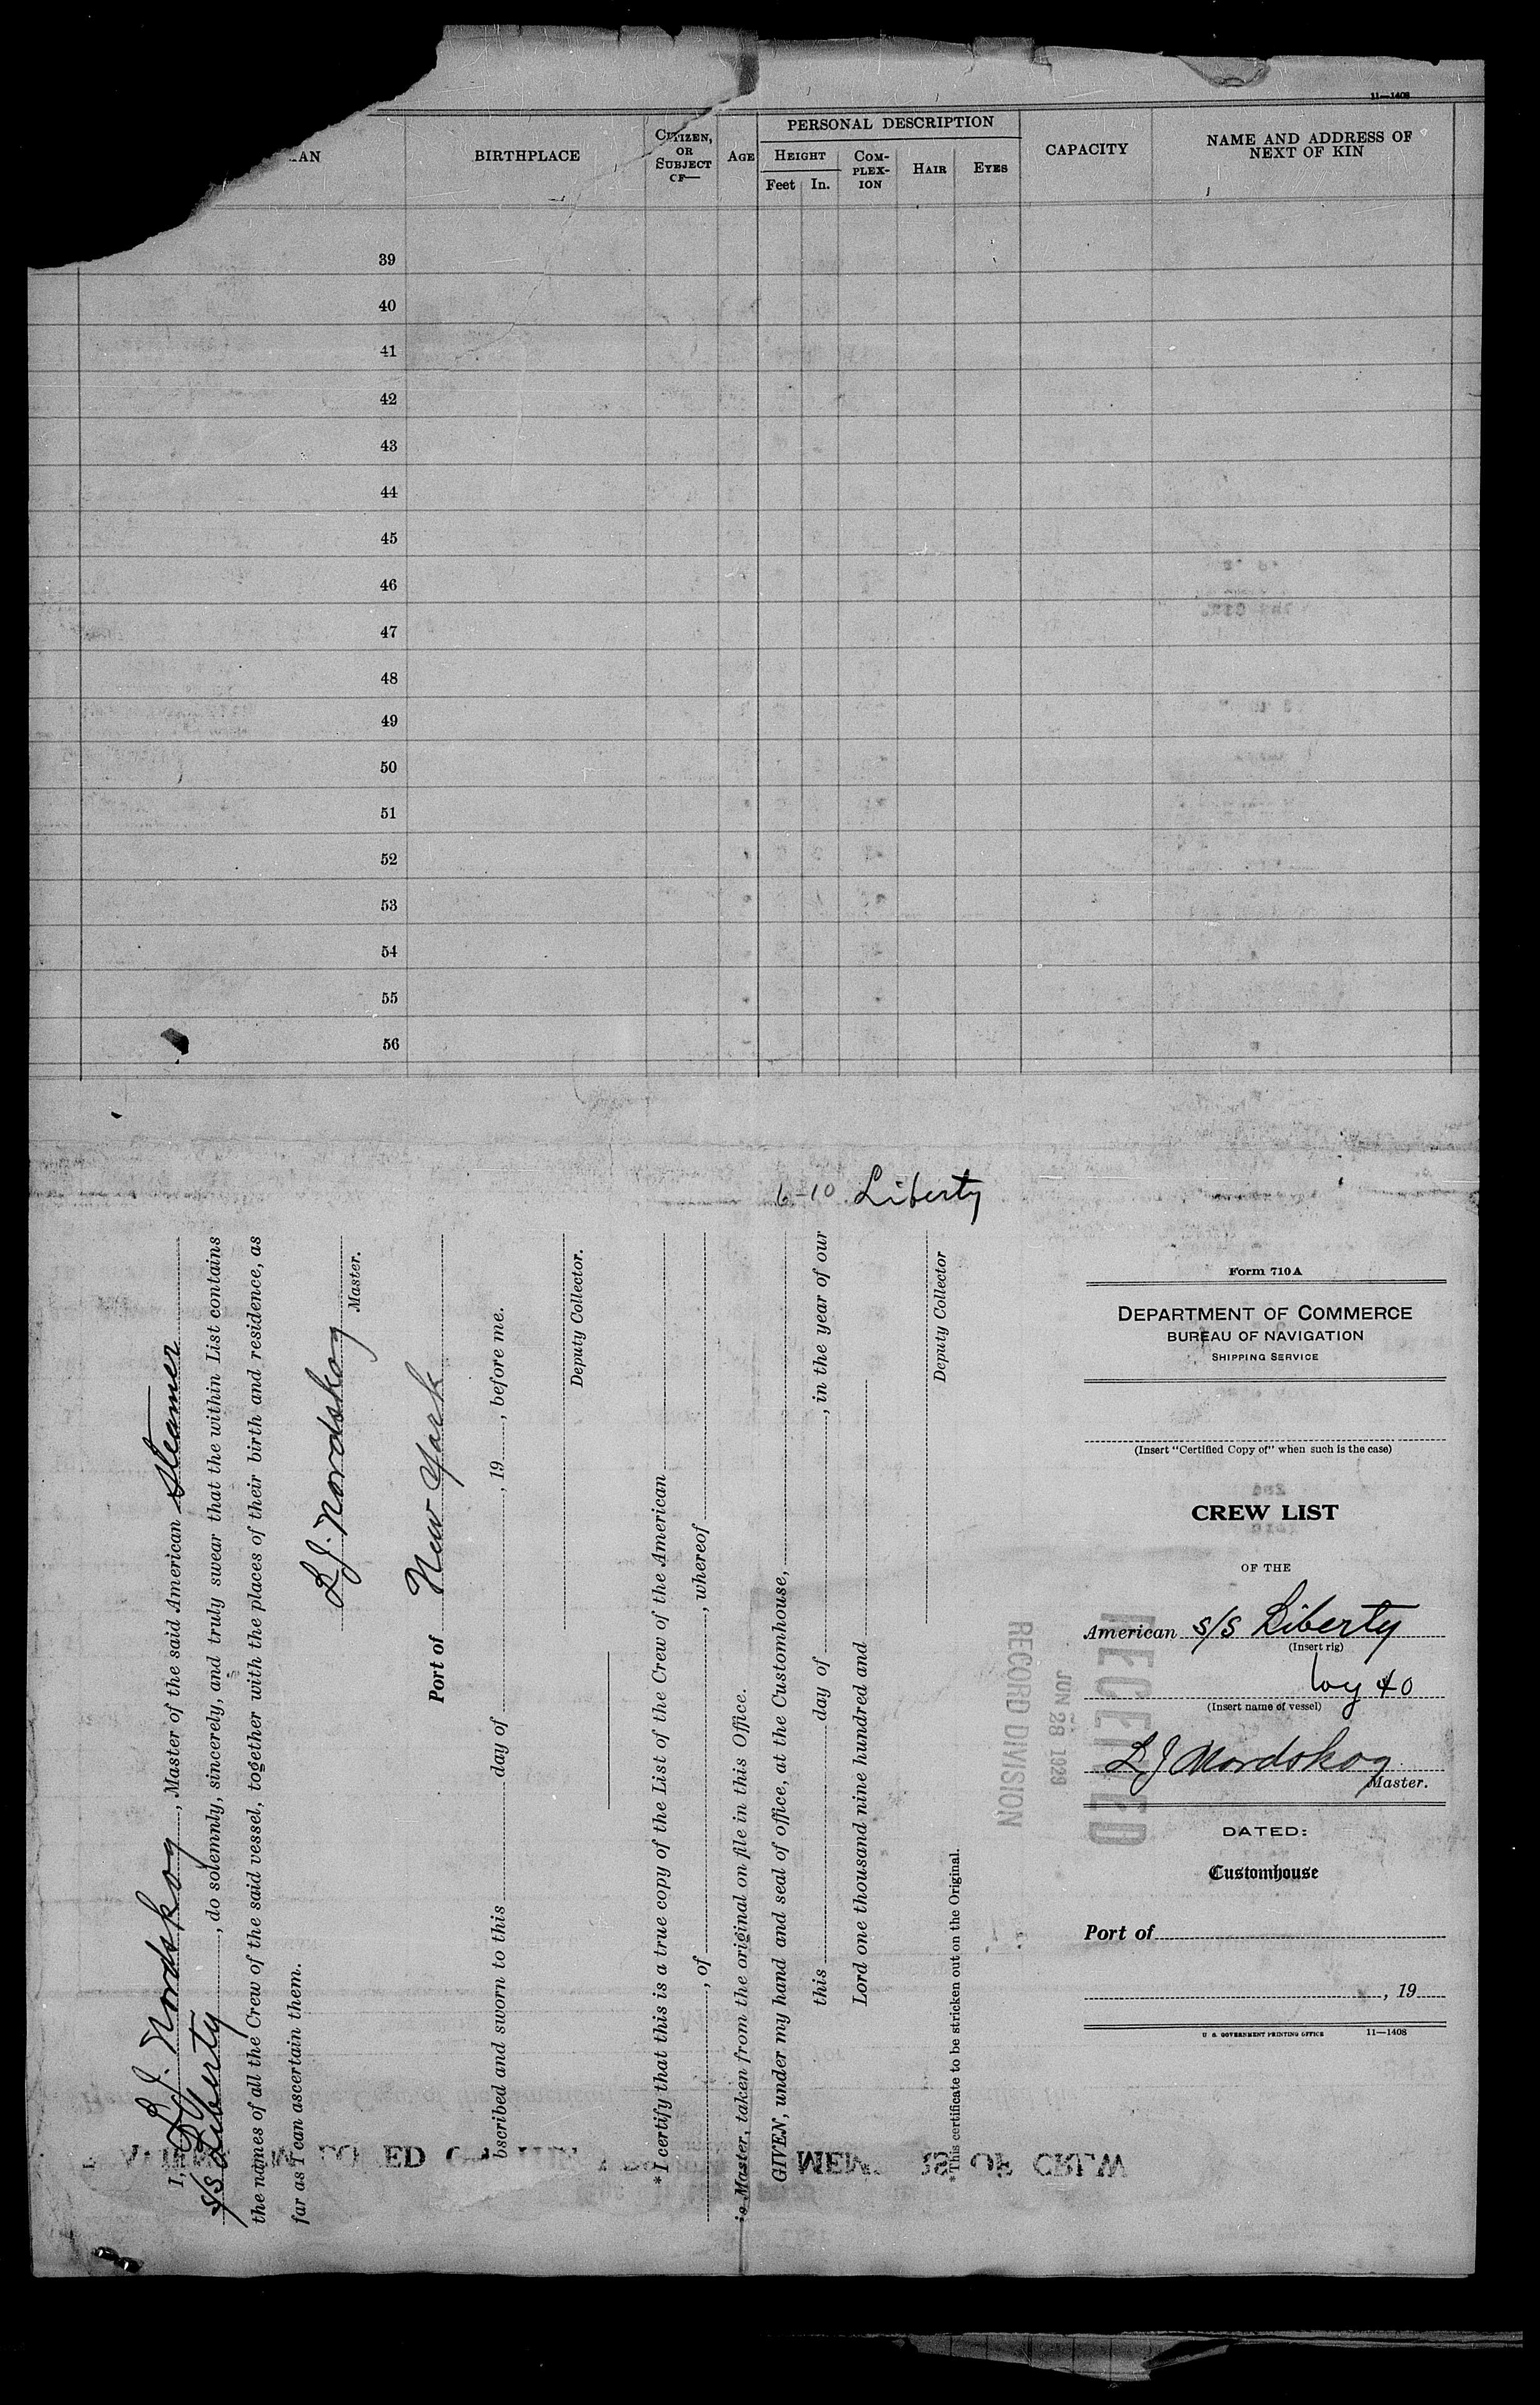 11—1408
AN
BIRTHPLACE
CITIZEN, OR SUBJECT OF—
AGE
PERSONAL DESCRIPTION
HEIGHT
Feet In.
COM-PLEX-ION
HAIR
EYES
CAPACITY
NAME AND ADDRESS OF NEXT OF KIN
39
40
41
42
43
44
45
46
47
48
49
50
51
52
53
54
55
56
6-10 Liberty
I, L. J. Nordskog, Master of the said American Steamer
s/s Liberty, do solemnly, sincerely, and truly swear that the within List contains
the names of all the Crew of the said vessel, together with the places of their birth and residence, as
far as I can ascertain them.
L J. Nordskog
Master.
Port of New York
bscribed and sworn to this day of , 19 , before me.
Deputy Collector.
*I certify that this is a true copy of the List of the Crew of the American
, of , whereof
is Master, taken from the original on file in this Office.
GIVEN, under my hand and seal of office, at the Customhouse,
this day of , in the year of our
Lord one thousand nine hundred and
Deputy Collector
*This certificate to be stricken out on the Original.
RECEIVED
JUN 28 1929
RECORD DIVISION
Form 710 A
DEPARTMENT OF COMMERCE
BUREAU OF NAVIGATION
SHIPPING SERVICE
(Insert "Certified Copy of" when such is the case)
CREW LIST
OF THE
American s/s Liberty
(Insert rig)
Voy 40
(Insert name of vessel)
L J Nordskog
Master.
DATED:
Customhouse
Port of
, 19
U. S. GOVERNMENT PRINTING OFFICE 11—1408